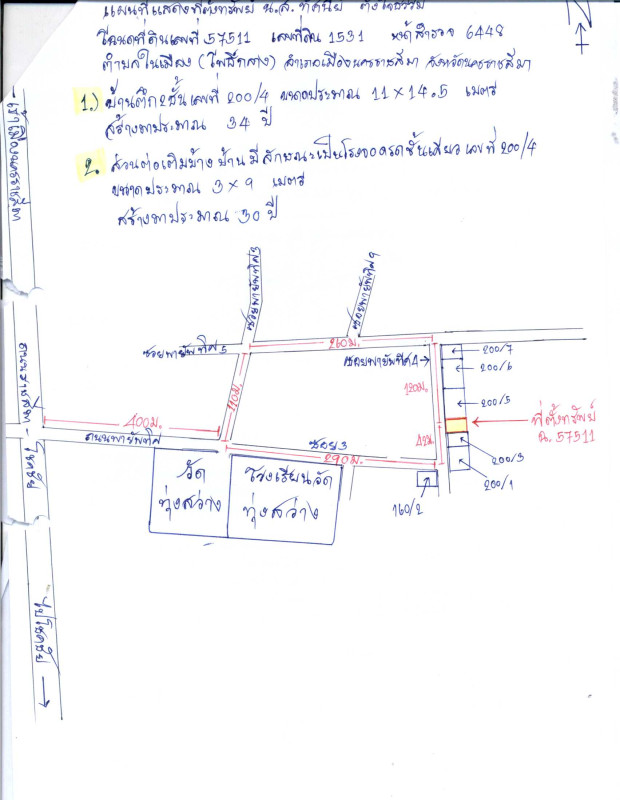 แผนที่แสดงที่ตั้งทรัพย์ น.ส.
โฉนดที่ดินเลขที่ 57511 เลขที่ดิน 1531 หน้าสำรวจ 6448
ตำบลในเมือง (โพธิ์กลาง) อำเภอเมืองนครราชสีมา จังหวัดนครราชสีมา
1.) บ้านตึก 2 ชั้น เลขที่ 200/4 ขนาดประมาณ 11 × 14.5 เมตร
สร้างมาประมาณ 34 ปี
2. ส่วนต่อเติมข้างบ้าน มีลักษณะเป็นโรงจอดรถชั้นเดียว เลขที่ 200/4
ขนาดประมาณ 3 × 9 เมตร
สร้างมาประมาณ 30 ปี
N
เข้าเมืองนครราชสีมา
ซอยพายัพทิศ 3
ซอยพายัพทิศ 9
ซอยพายัพทิศ 5
260 ม.
ซอยพายัพทิศ 4
200/7
200/6
200/5
110 ม.
120 ม.
ที่ตั้งทรัพย์
ฉ. 57511
400 ม.
ถนนพายัพทิศ
ซอย 3
290 ม.
42 ม.
200/3
200/1
160/2
วัด
ทุ่งสว่าง
โรงเรียนวัด
ทุ่งสว่าง
โชคชัย
ไปโชคชัย